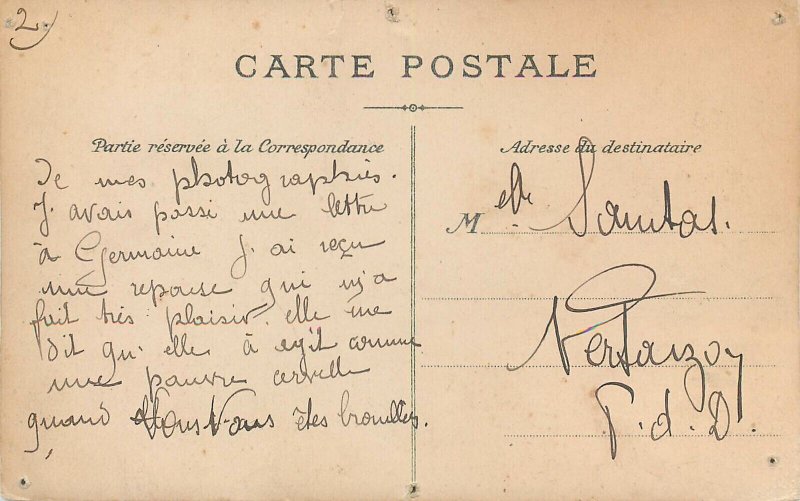 2)
CARTE POSTALE
Partie réservée à la Correspondance
Adresse du destinataire
De mes photographies.
J. avais passi une lettre
à Germaine J. ai reçu
une reponse qui m'a
fait très plaisir. elle me
dit qu'elle à agit comme
une pauvre cervelle
quand Vous Vous êtes brouilles.
Melle
Vertaizon
P. d. D.